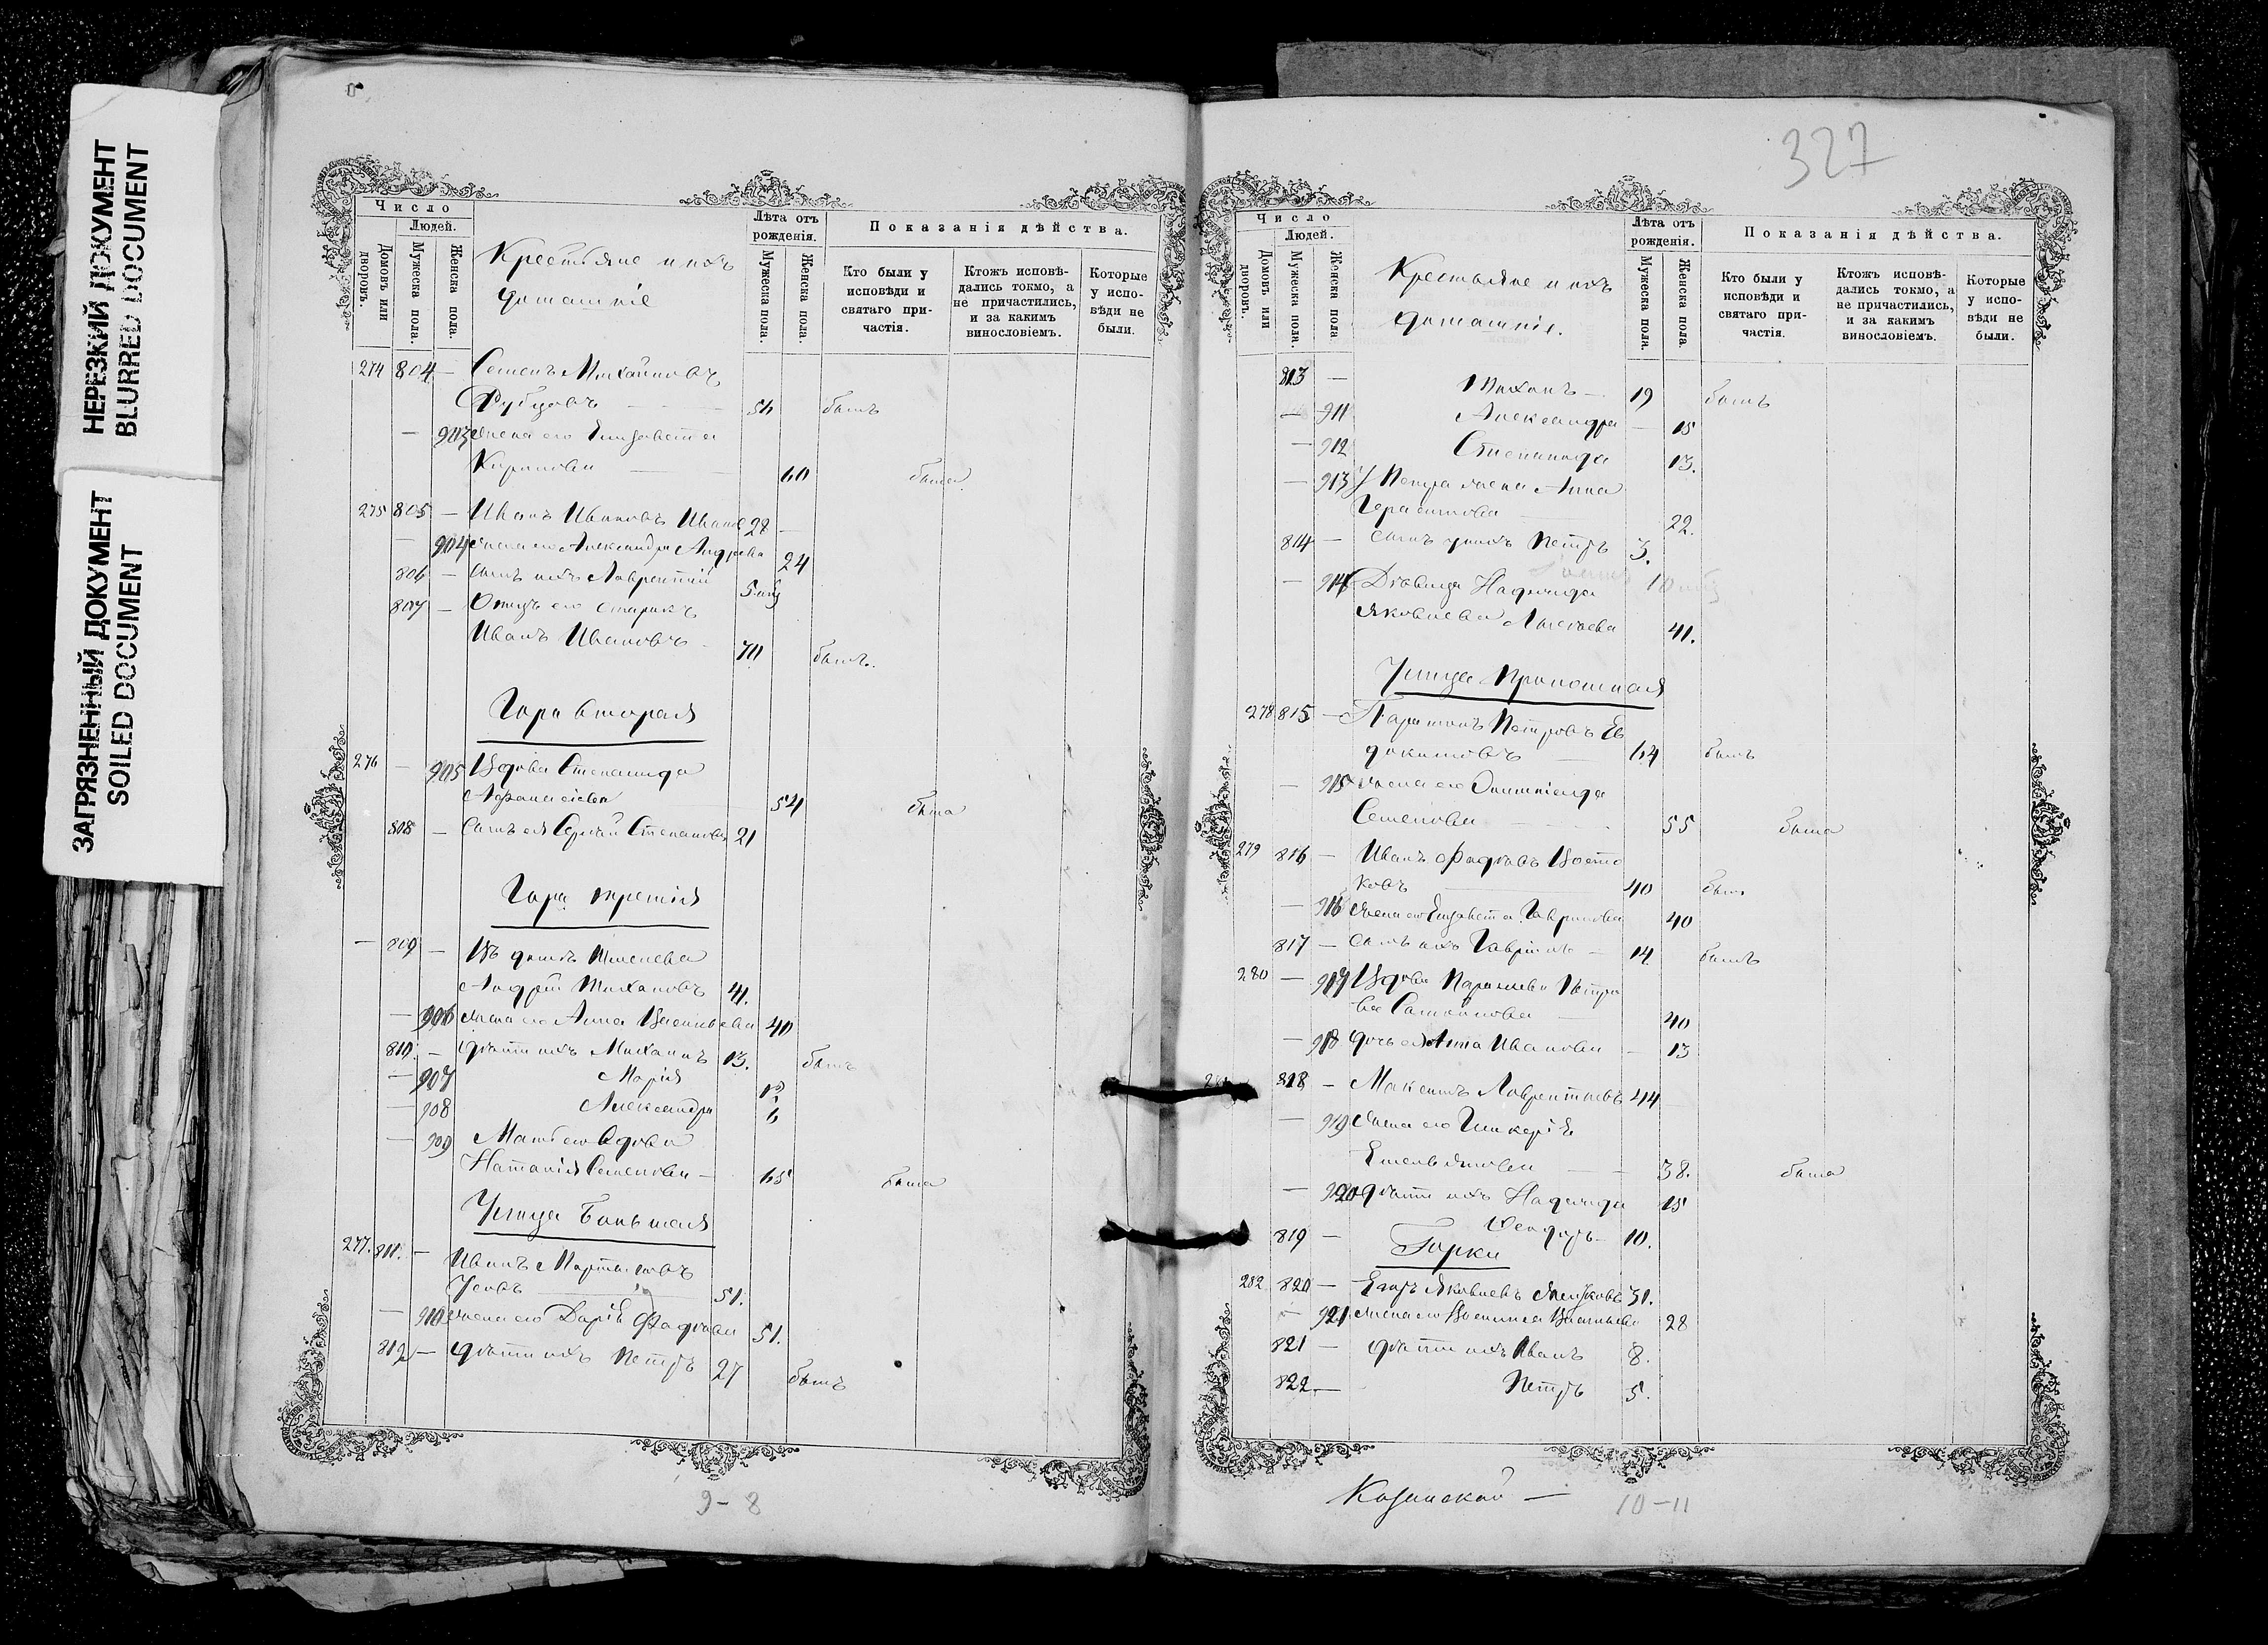 НЕРЕЗКИЙ ДОКУМЕНТ
BLURRED DOCUMENT
ЗАГРЯЗНЕННЫЙ ДОКУМЕНТ
SOILED DOCUMENT
Число
Людей.
Домовъ или дворовъ.
Мужеска пола.
Женска пола.
Крестьяне и ихъ
домашніе
Лѣта отъ рожденія.
Мужеска пола.
Женска пола.
Показанія дѣйства.
Кто были у исповѣди и святаго причастія.
Ктожъ исповѣдались токмо, а не причастились, и за какимъ винословіемъ.
Которые у исповѣди не были.
274 804 — Семенъ Михайловъ
56 былъ
903 Жена его Елизавета
Кирилова 60 была
275 805 — Иванъ Ивановъ 28
904 Жена его Александра Андреева 24
806 — Сынъ ихъ Лаврентій
807 — Отецъ его старикъ
Иванъ Ивановъ 70 былъ
Гора вторая
276 — 905 Вдова Степанида
Афанасіева 54 была
808 — Сынъ ея Сергѣй Степановъ 21
Гора третія
— 809 — Въ домѣ
Андрей Михайловъ 41.
— 906 Жена его Анна Васильева 40
810 — Дѣти ихъ Михаилъ 13. былъ
— 907 Марія
— 908 Александра 6
— 909 Мать его вдова
Наталія Семенова — 65 была
Улица Большая
277. 811. — Иванъ
Усовъ 51.
— 910 Жена его Дарія 51.
812 — Дѣти ихъ Петръ 27 былъ
9-8
327
Число
Людей.
Домовъ или дворовъ.
Мужеска пола.
Женска пола
Крестьяне и ихъ
домашніе.
Лѣта отъ рожденія.
Мужеска пола.
Женска пола.
Показанія дѣйства.
Кто были у исповѣди и святаго причастія.
Ктожъ исповѣдались токмо, а не причастились, и за какимъ винословіемъ.
Которые у исповѣди не были.
813 — 19 былъ
— 911 Александра — 15
— 912 Степанида 13.
— 913 У Петра жена Анна
Герасимова 22.
814 — сынъ у нихъ Петръ 3.
— 914 Дѣвица Надежда
Яковлева 41.
Улица
278 815 — Парамонъ Петровъ Ев
докимовъ 64 былъ
— 915 Жена его
Семенова 55 была
279 816 — Иванъ
ковъ 40 былъ
— 916 Жена его Елизавета Гаврилова 40
817 — Сынъ ихъ Гавріилъ — 14 былъ
280 — 917 Вдова Параскева Петро
ва 40
— 918 Дочь ея Анна Иванова — 13
818 — Максимъ Лаврентьевъ 44
— 919 Жена его Гликерія
Емельянова 38. была
— 920 Дѣти ихъ Надежда 15
819 — Ѳеодоръ 10.
Горки
282 820 — Егоръ Яковлевъ 31.
921 Жена его Василиса Васильева 28
821 — Дѣти ихъ Иванъ 8.
822 — Петръ 5.
Казанской —
10-11